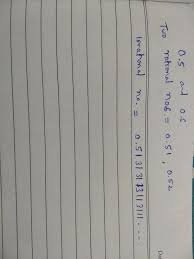 0.5 and 0.6
Two rational nos = 0.51, 0.52
Irrational no. = 0.51313131131111...